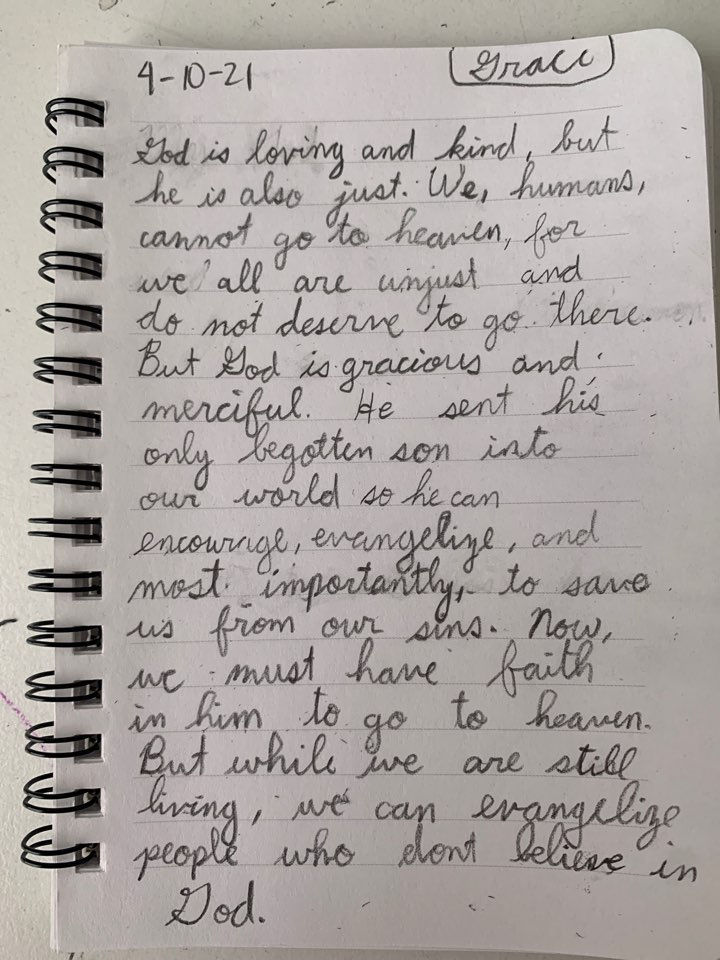 4-10-21
Grace
God is loving and kind, but
he is also just. We, humans,
cannot go to heaven, for
we all are unjust and
do not deserve to go there.
But God is gracious and
merciful. He sent his
only begotten son into
our world so he can
encourage, evangelize, and
most importantly, to save
us from our sins. Now,
we must have faith
in him to go to heaven.
But while we are still
living, we can evangelize
people who dont believe in
God.